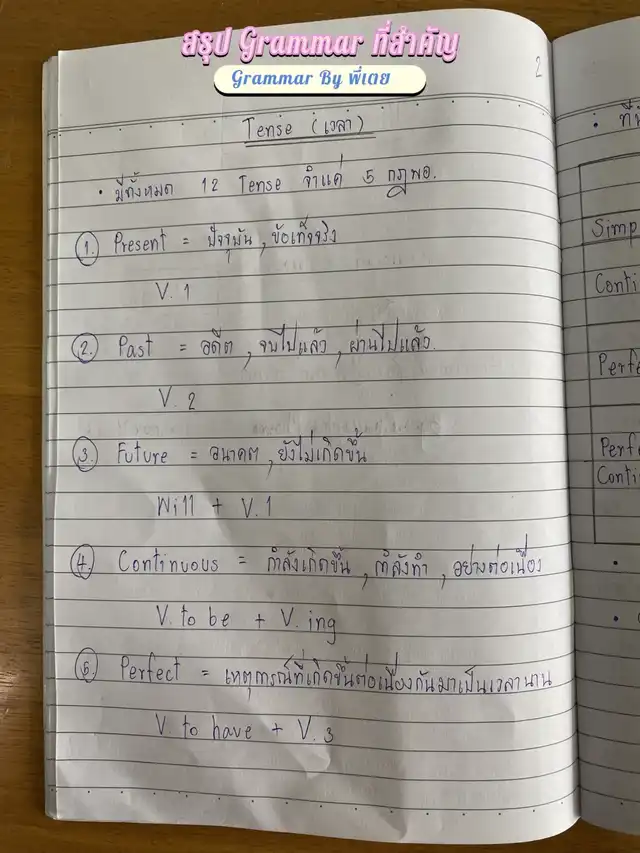 สรุป Grammar ที่สำคัญ
Grammar By พี่เตย
2
Tense (เวลา)
• มีทั้งหมด 12 Tense จำแค่ 5 กฎพอ.
① Present = ปัจจุบัน, ข้อเท็จจริง
V. 1
②. Past = อดีต, จบไปแล้ว, ผ่านไปแล้ว.
V. 2
③. Future = อนาคต, ยังไม่เกิดขึ้น
Will + V.1
④. Continuous = กำลังเกิดขึ้น, กำลังทำ, อย่างต่อเนื่อง
V. to be + V. ing
⑤ Perfect = เหตุการณ์ที่เกิดขึ้นต่อเนื่องกันมาเป็นเวลานาน
V. to have + V.3
Simp
Conti
Perfe
Perf
Conti